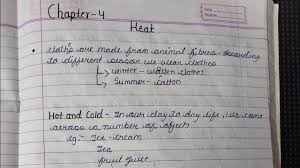 Chapter-4
Heat
• Cloths are made from animal fibres. According
to different season we wear clothes
↳ winter - woolen clothes
↳ Summer - cotton
Hot and Cold - In our day to day life, we come
across a number of objects.
eg:- Ice-cream
Tea
fruit Juice